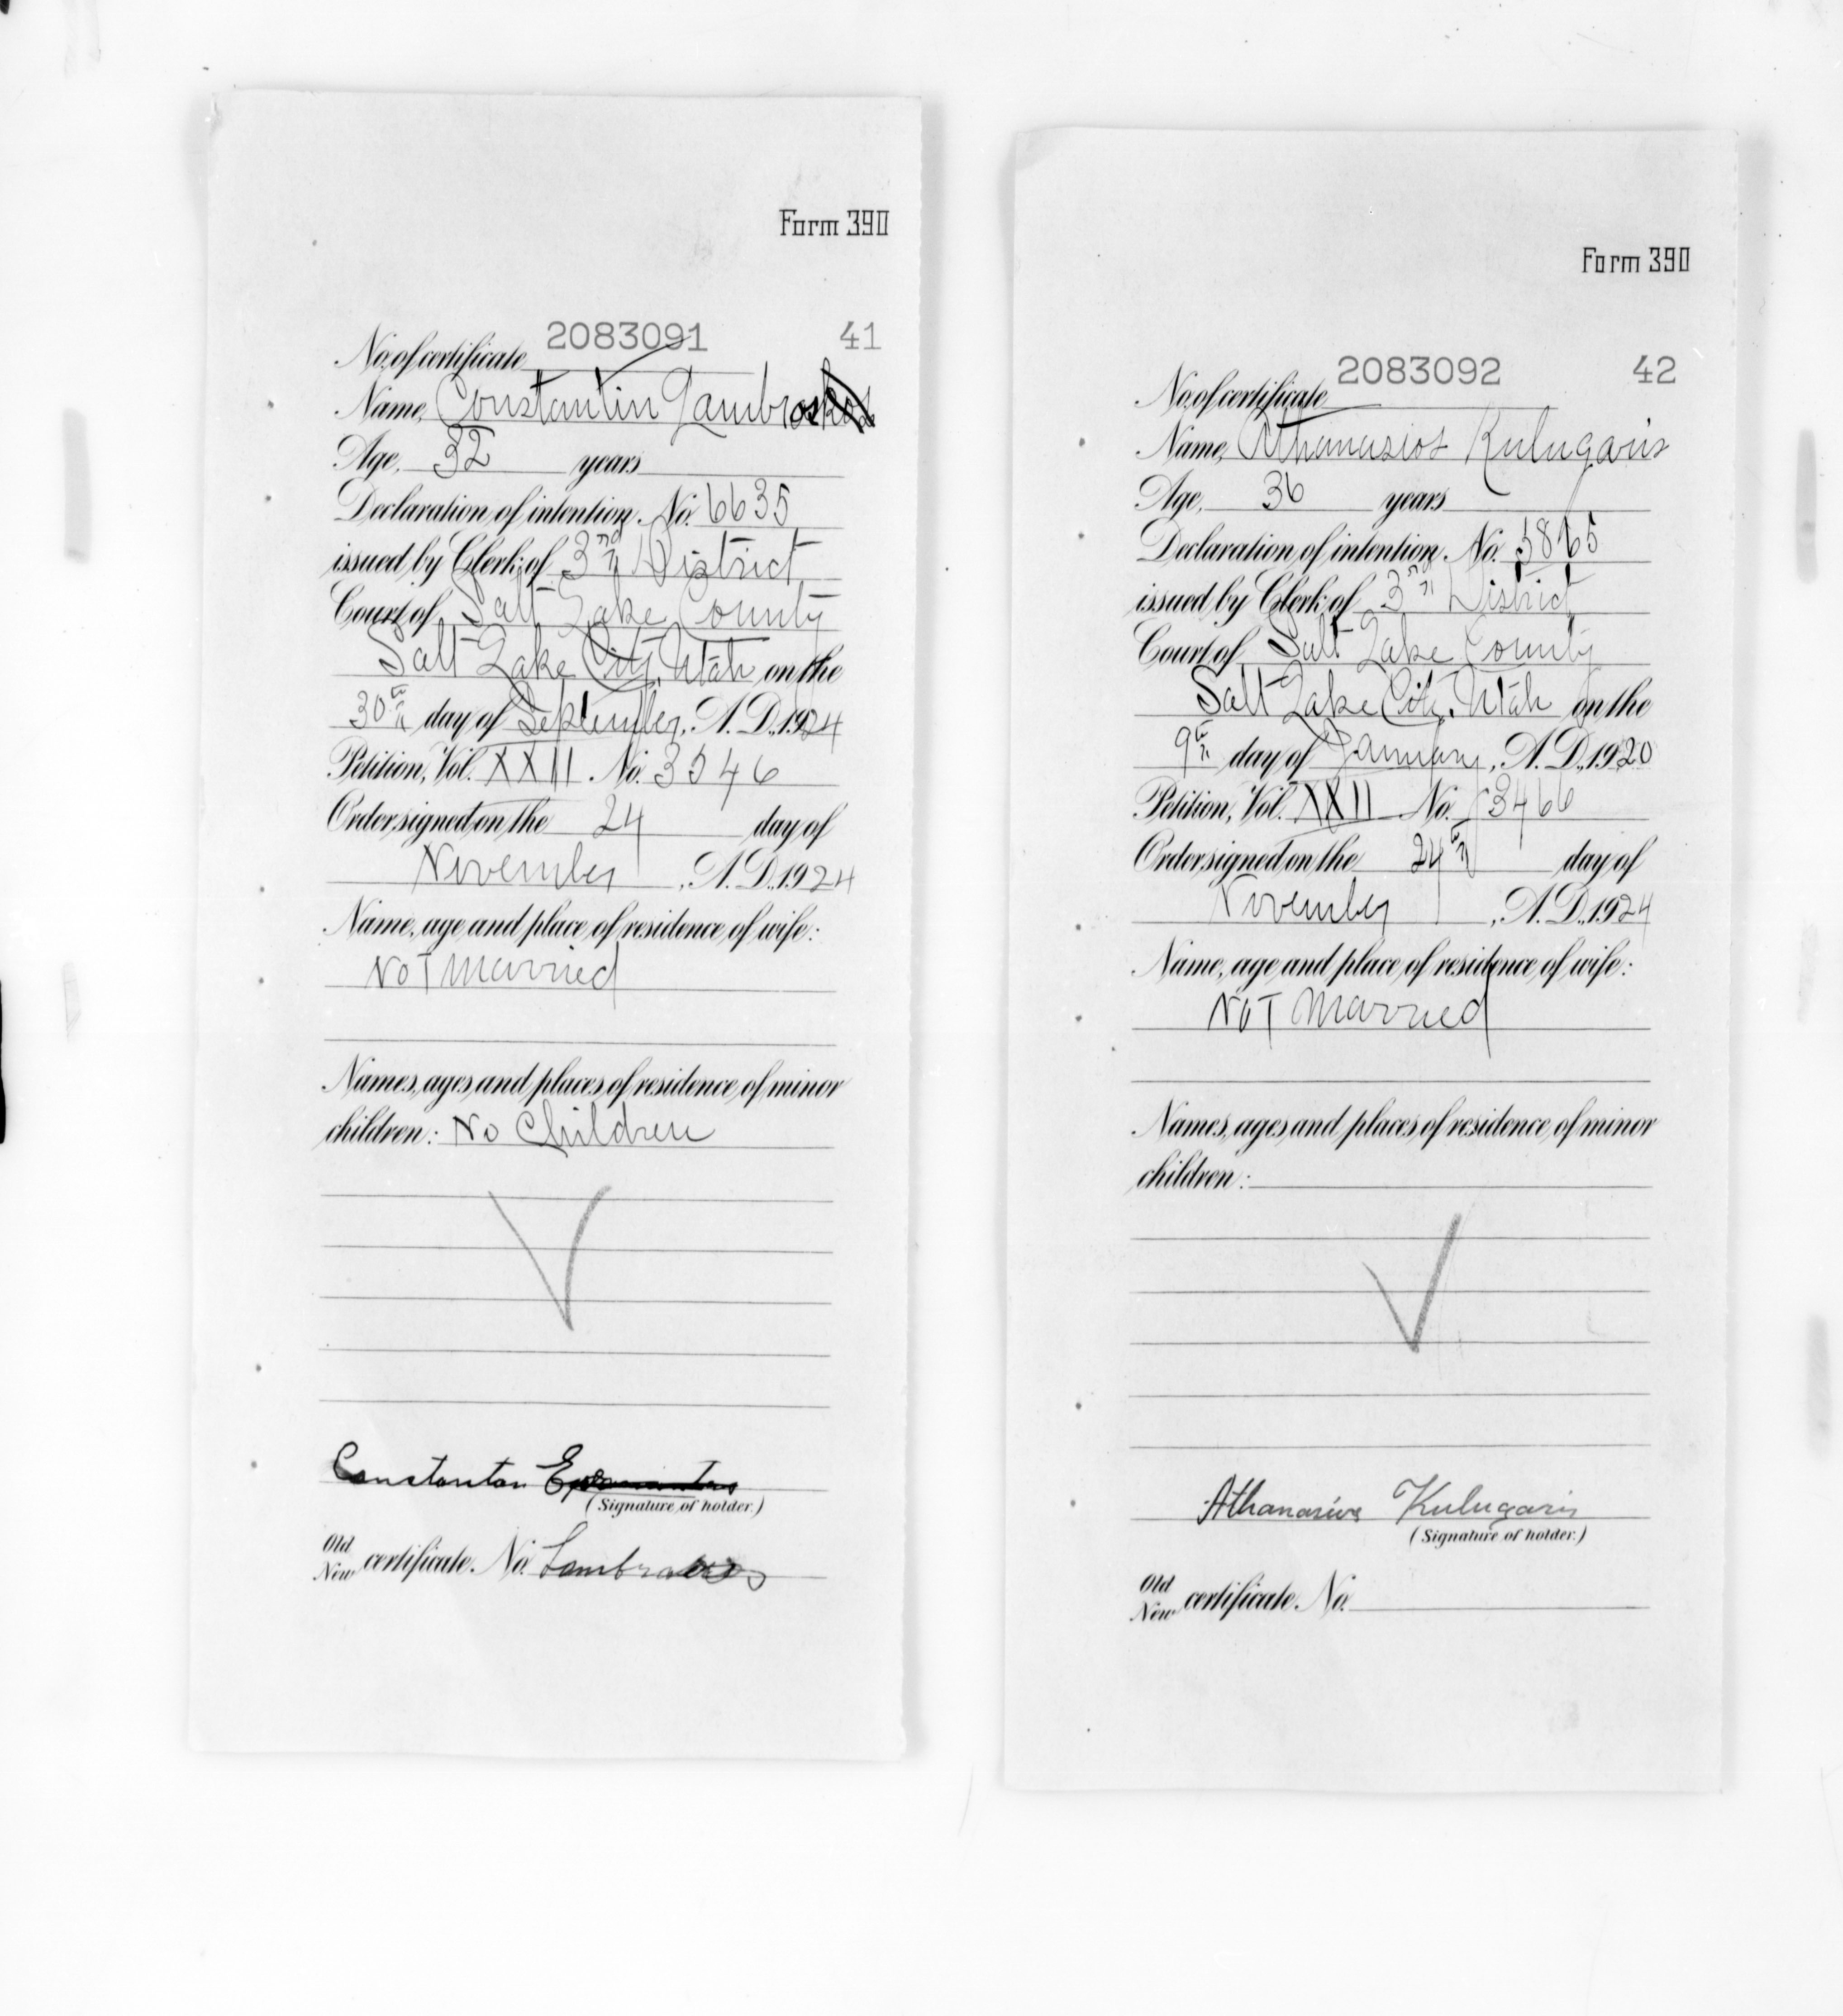 Form 390
No. of certificate 2083091 41
Name, Constantin Lambros
Age, 32 years
Declaration of intention, No. 6635
issued by Clerk of 3rd District
Court of Salt Lake County
Salt Lake City, Utah on the
30th day of September, A. D., 1924
Petition, Vol. XXII No. 3546
Order signed on the 24 day of
November, A. D., 1924
Name, age and place of residence of wife:
Not Married
Names, ages and places of residence of minor
children: No Children
Constanton
(Signature of holder.)
Old
New certificate, No.
Form 390
No. of certificate 2083092 42
Name, Athanasios Kulugaris
Age, 36 years
Declaration of intention, No. 5865
issued by Clerk of 3rd District
Court of Salt Lake County
Salt Lake City, Utah on the
9th day of January, A. D., 1920
Petition, Vol. XXII No. 3466
Order signed on the 24th day of
November, A. D., 1924
Name, age and place of residence of wife:
Not Married
Names, ages and places of residence of minor
children:
Athanasios Kulugaris
(Signature of holder.)
Old
New certificate, No.